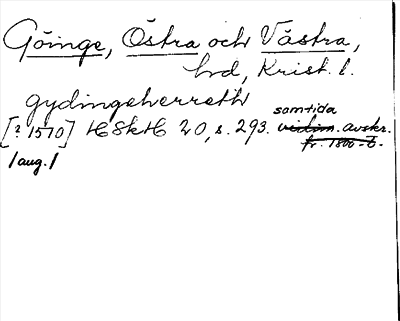 Göinge, Östra och Västra,
hd, Krist. l.
gydingeherreth
[? 1510] HSkH 20, s. 293. samtida avskr.
fr. 1800-t.
/aug./